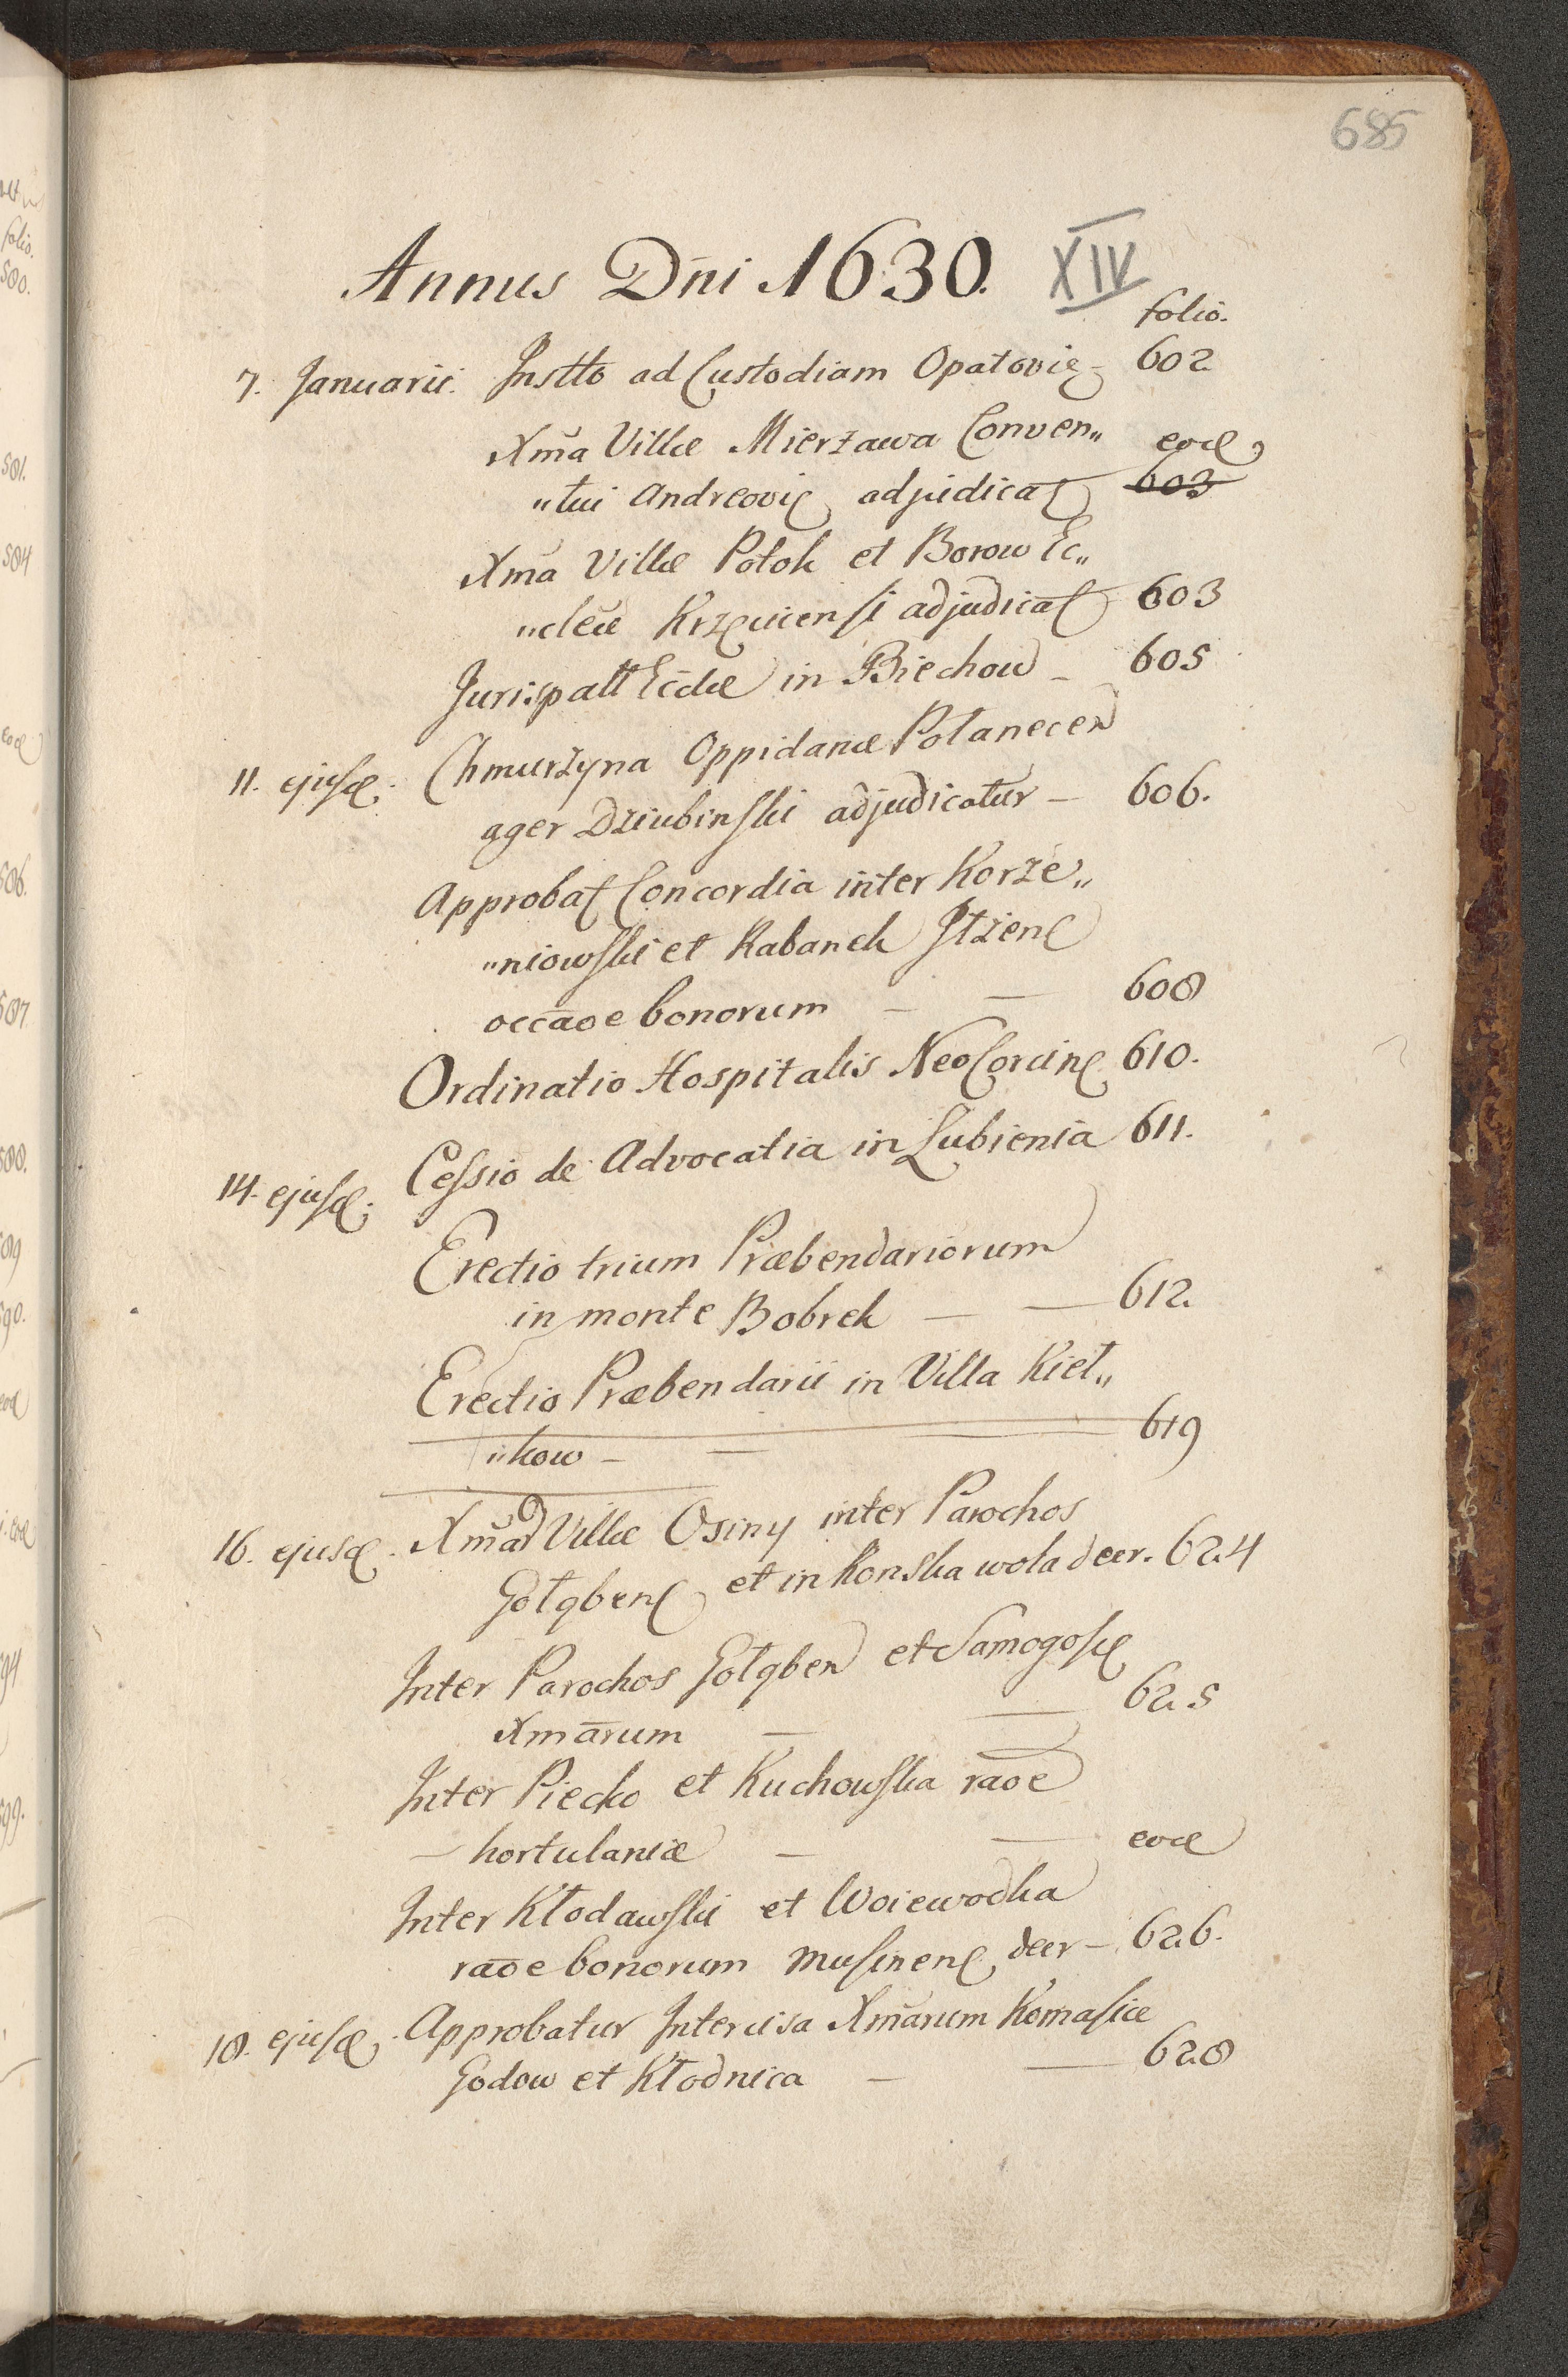 685
Annus Dni 1630. XIV
folio.
7. Januarii. Instto ad Custodiam Opatovie 602
Xma Villæ Mierzawa Conven„ eod
„tui Andreovi adjudicat 603
Xma Villæ Potok et Borow Ec„
„cleæ Krzęcicensi adjudicat 603
Jurispatt Eccliæ in Biechow 605
11. ejusd. Chmurzyna Oppidanæ Połanecen
ager Dziubinski adjudicatur — 606.
Approbat Concordia inter Korze„
„niowski et Rabanek Itzen
occaoe bonorum — — 608
Ordinatio Hospitalis NeoCorcin 610.
14. ejusd. Cessio de Advocatia in Lubienia 611.
Erectio trium Præbendariorum
in monte Bobrek — — 612.
Erectio Præbendarii in Villa Kieł„
„kow — — 619
16. ejusd. Xmar Villæ Osiny inter Parochos
Gołąben et in Konska wola decr. 624
Inter Parochos Gołąben et Samogosc
Xmarum — — 625
Inter Piecko et Kuchowska raoe
— hortulaniæ — — eod
Inter Kłodawski et Woiewodka
raoe bonorum Musinen decr — 626.
18. ejusd. Approbatur Intercisa Xmarum Komasice
Godow et Kłodnica — — 628